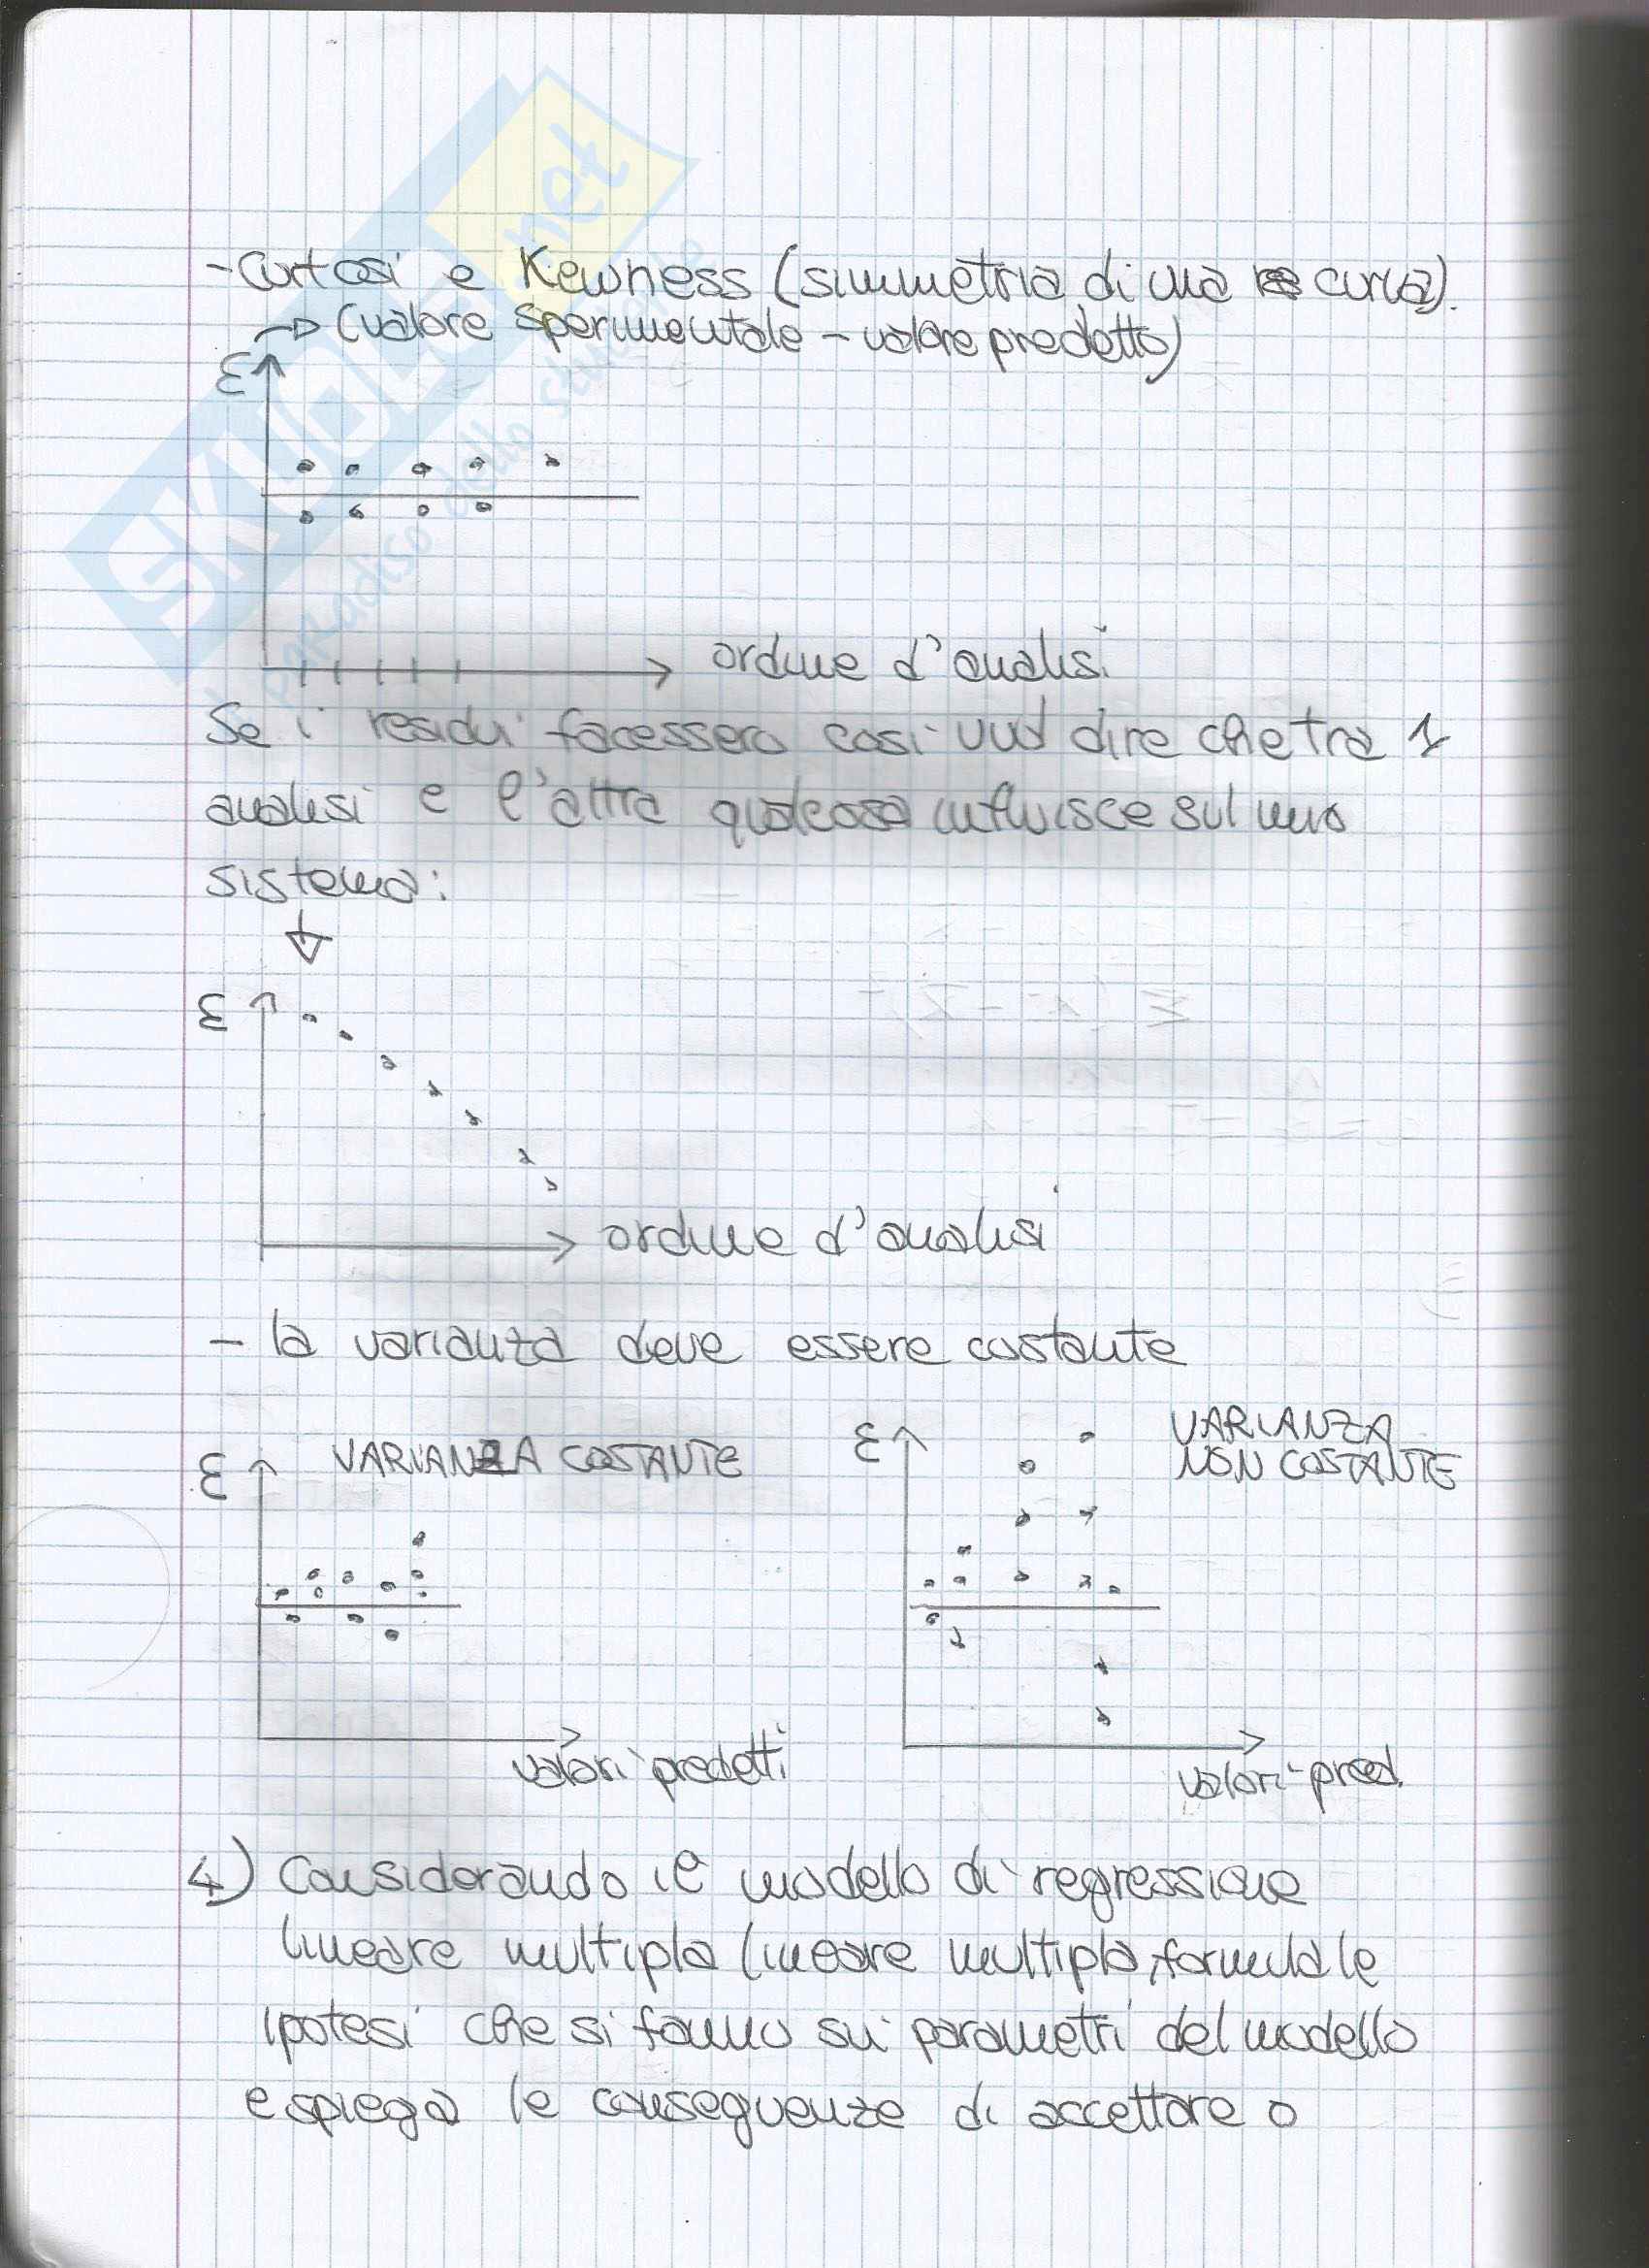 SKUOLA.net
il paradiso dello studente
- Curtosi e Kewness (simmetria di una curva).
→ (valore sperimentale - valore predetto)
ε
ordine d'analisi
Se i residui facessero così vuol dire che tra 1
analisi e l'altra qualcosa influisce sul mio
sistema:
ε
ordine d'analisi
- la varianza deve essere costante
ε VARIANZA COSTANTE
ε VARIANZA
NON COSTANTE
valori predetti
valori pred.
4) Considerando il modello di regressione
lineare multipla (lineare multipla, formula le
ipotesi che si fanno sui parametri del modello
e spiega le conseguenze di accettare o